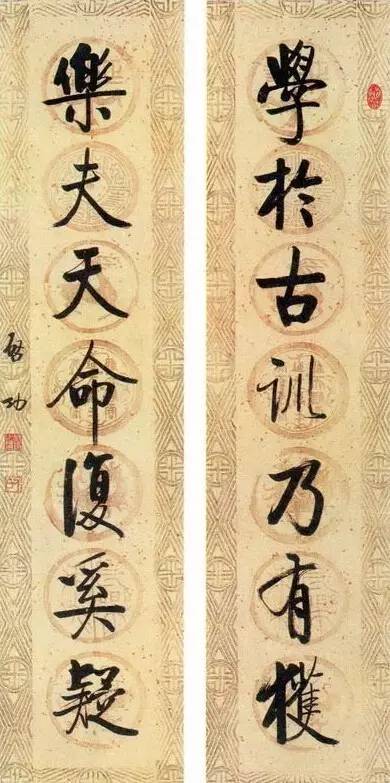 學於古訓乃有獲
樂夫天命復奚疑
启功